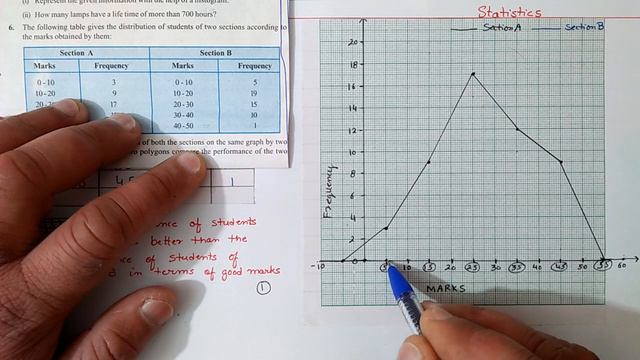 (i) Represent the given information with the help of a histogram.
(ii) How many lamps have a life time of more than 700 hours?
6. The following table gives the distribution of students of two sections according to
the marks obtained by them:
Section A Section B
Marks Frequency Marks Frequency
0-10 3 0-10 5
10-20 9 10-20 19
17 20-30 15
30-40 10
40-50 1
of both the sections on the same graph by two
polygons compare the performance of the two
1
of students
better than the
students of
in terms of good marks
1
Statistics
Section A Section B
20
18
16
14
12
10
8
6
4
2
Frequency
-10 0 5 10 15 20 25 30 35 40 45 50 55 60
MARKS